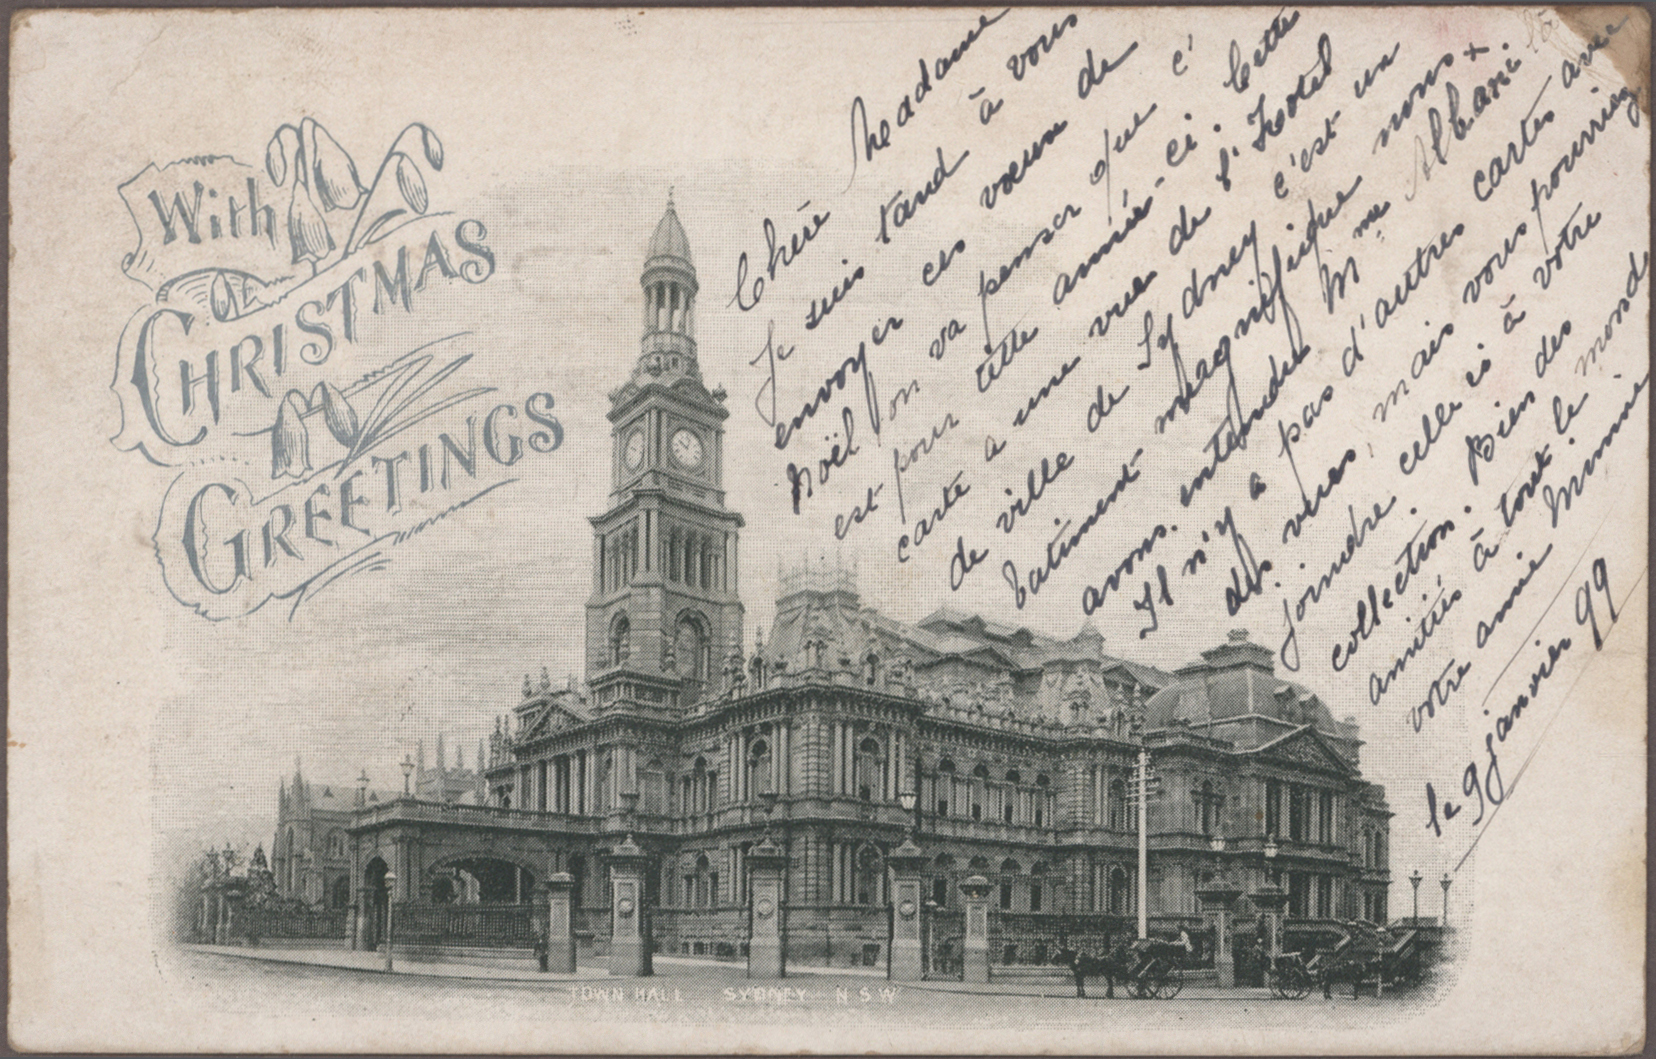 With
CHRISTMAS
GREETINGS
Chère Madame
Je suis tard à vous
envoyer ces voeux de
Noël, on va penser que c'
est pour cette année-ci. Cette
carte a une vue de l'Hotel
de ville de Sydney c'est un
batiment magnifique nous x
avons entendu Mme Albani.
Il n'y a pas d'autres cartes avec
des vues, mais vous pourriez
joindre celle ci à votre
collection. Bien des
amitiés à tout le monde
votre amie Minnie
le 9 janvier 99
TOWN HALL SYDNEY N S W